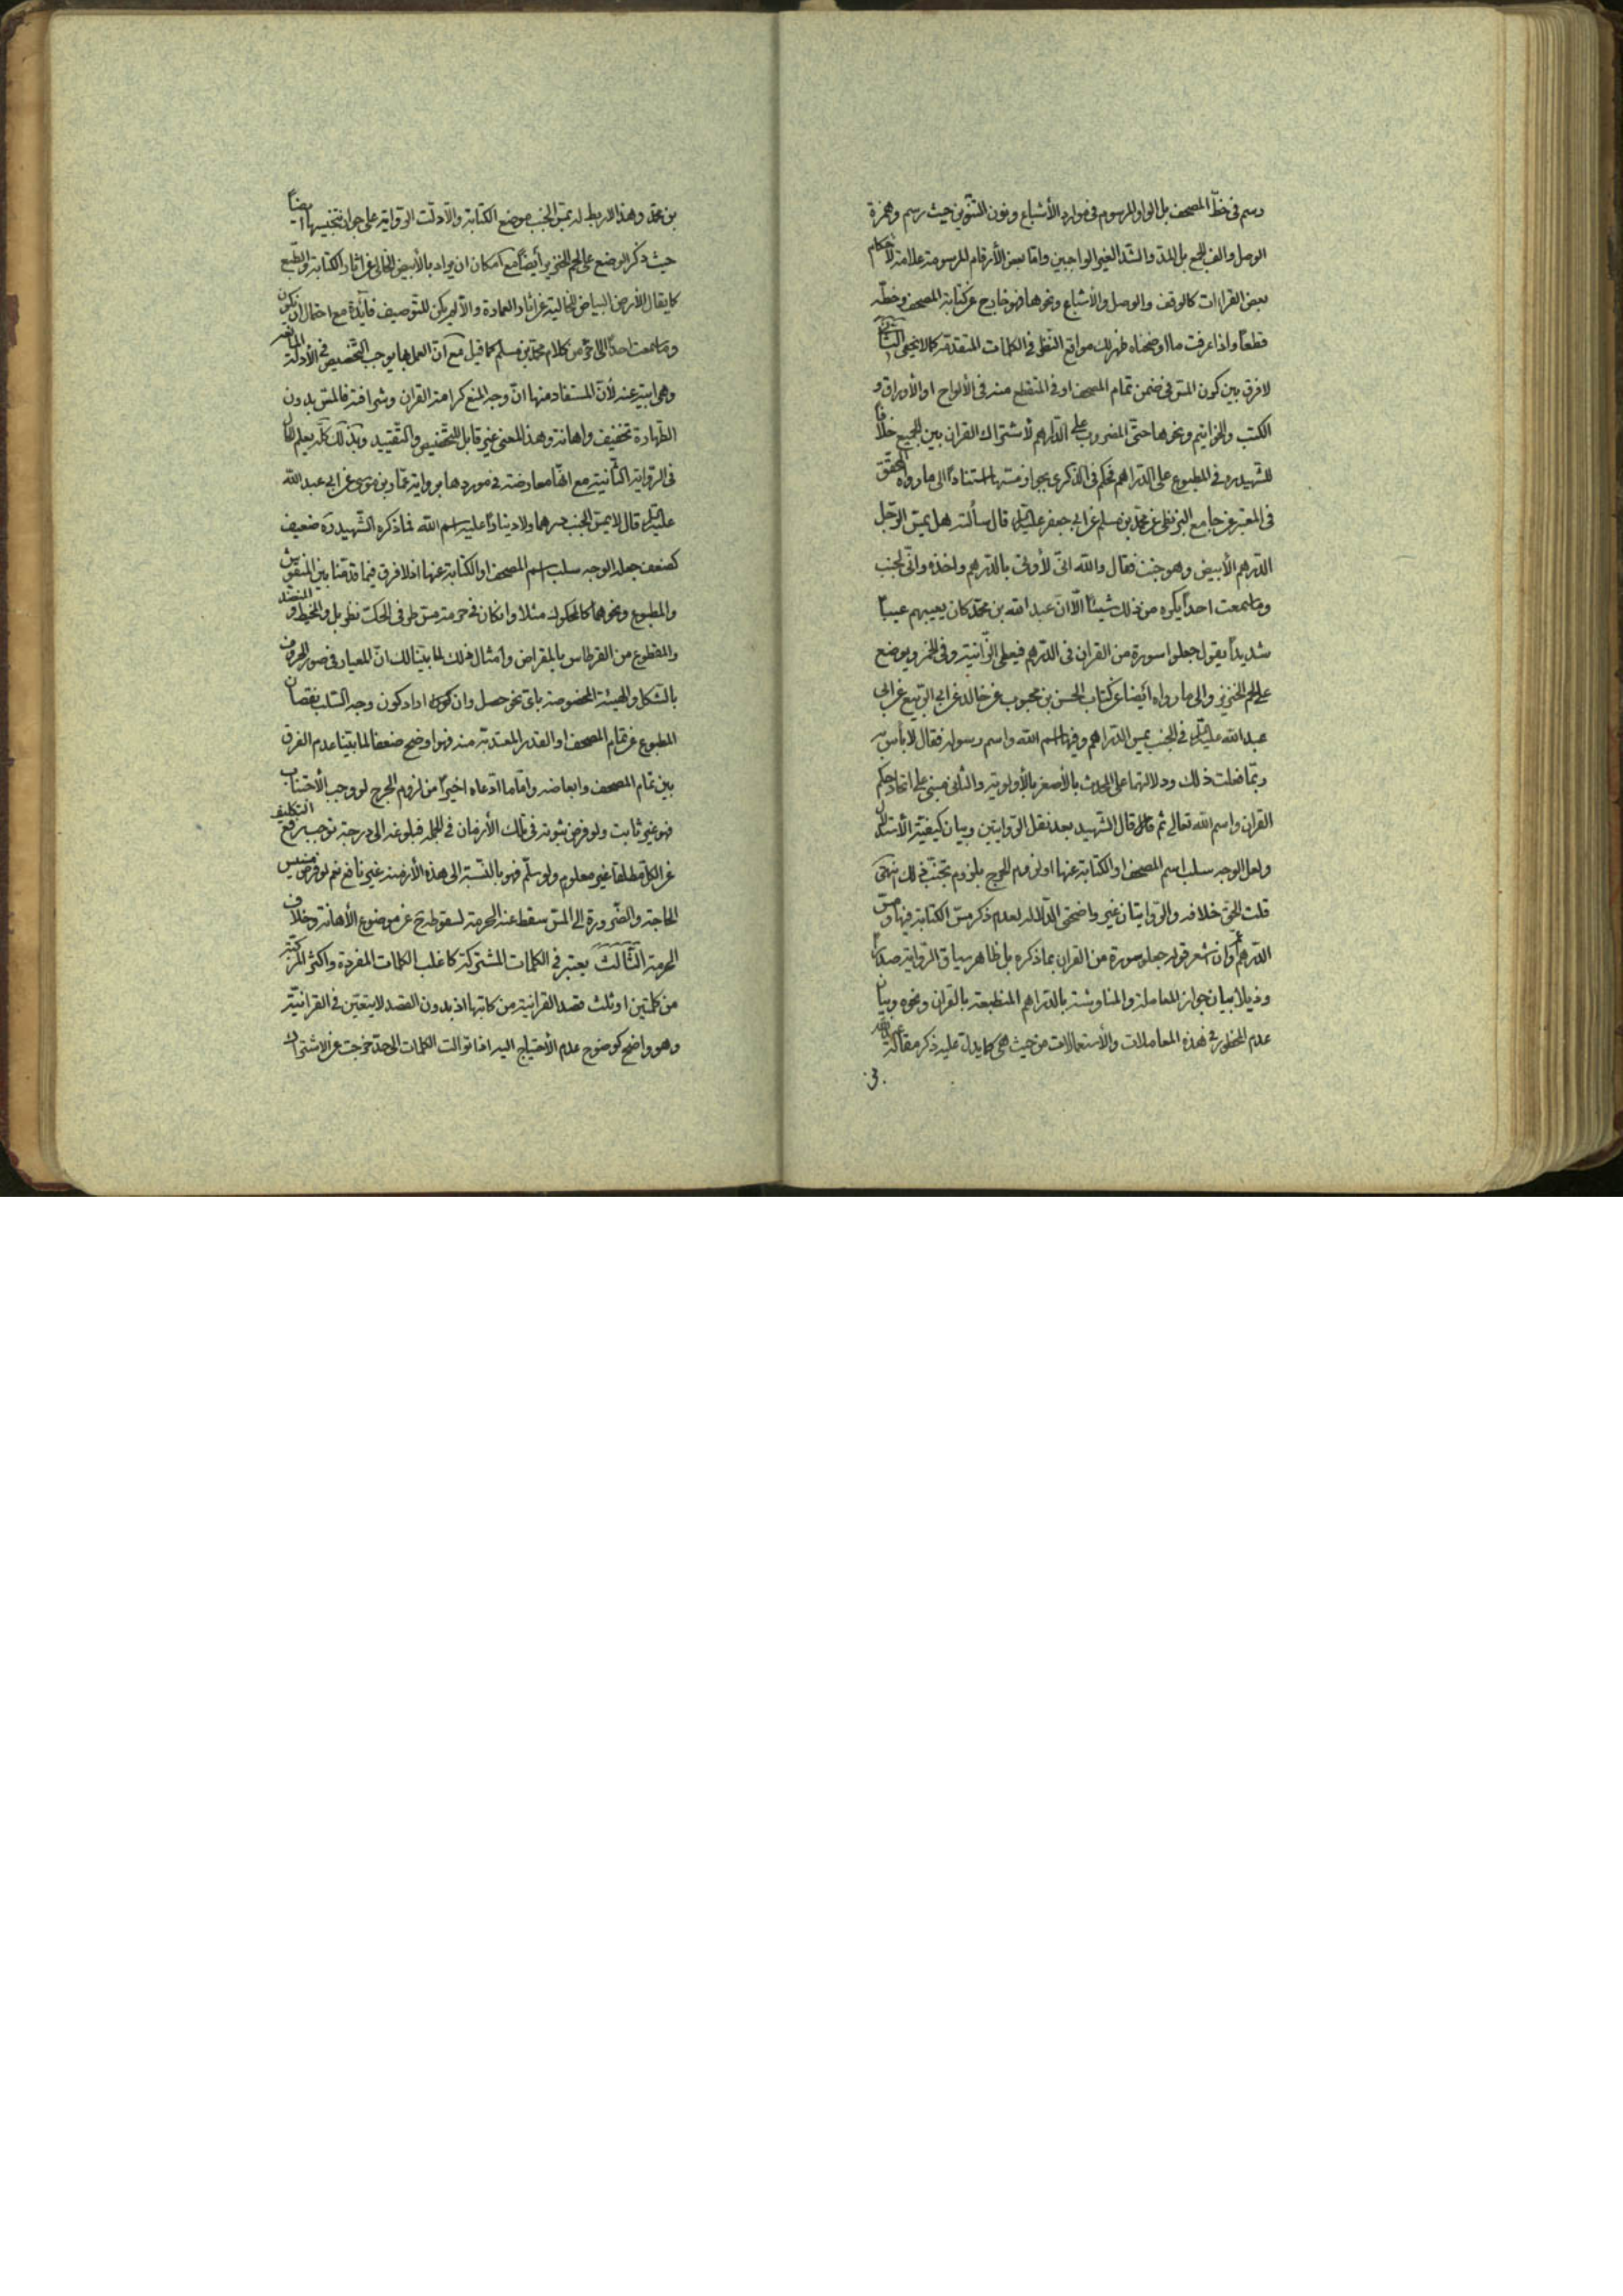 رسم فى خطّ المصحف بل الواو المرسوم فى موارد الأشباع ونون التنوين حيث رسم وهمزة
الوصل والف الجمع بل المدّ والشدّ الغير الواجبين وامّا بعض الأرقام المرسومة علامة لأحكام
بعض القراءات كالوقف والوصل والأشباع ونحوها فهو خارج عن كتابة المصحف وخطّه
قطعاً واذا عرفت ما اوضحناه ظهر لك مواقع النظر فى الكلمات المتقدّمة كما لا يخفى الثانى
لا فرق بين كون المسّ فى ضمن تمام المصحف او فى المنقطع منه فى الألواح او الأوراق و
الكتب والخواتيم ونحوها حتّى المضروب على الدّراهم لأشتراك القران بين الجميع خلافاً
للشهيد ره فى المطبوع على الدّراهم فحكم فى الذّكرى بجواز مسّها استناداً الى ما رواه المحقّق
فى المعتبر عن جامع البزنطى عن محمّد بن مسلم عن ابى جعفر عليه السّلام قال سألته هل يمسّ الرّجل
الدّرهم الأبيض وهو جنب فقال والله انّى لأوتى بالدّرهم واخذه وانّى لجنب
وما سمعت احداً يكره من ذلك شيئاً الّا انّ عبد الله بن محمّد كان يعيبهم عيباً
شديداً يقول جعلوا سورة من القران فى الدّرهم فيعطى الزّانية وفى الخمر ويوضع
على لحم الخنزير والى ما رواه أيضا عن كتاب الحسن بن محبوب عن خالد عن ابى الرّبيع عن ابى
عبد الله عليه السّلام فى الجنب يمس الدّراهم وفيها اسم الله واسم رسوله فقال لا بأس به
ربّما فعلت ذلك ودلالتهما على الحدث بالأصغر بالأولويّة والثّانى مبنى على اتحاد حكم
القران واسم الله تعالى ثم قال الشّهيد بعد نقل الرّوايتين وبيان كيفيّة الأستدلال
ولعل الوجه سلب اسم المصحف او الكتابة عنها او لزوم الحرج بلزوم تجنّب ذلك انتهى
قلت الحقّ خلافه والرّوايتان غير واضحتى الدّلالة لعدم ذكر مسّ الكتابة فيها ومسّ
الدّرهم اعم وان اشعر قوله جعلوا سورة من القران بما ذكره بل ظاهر سياق الرّواية صدراً
وذيلا بيان جواز المعاملة والمناوشة بالدّراهم المنطبعة بالقران ونحوه وبيان
عدم المحظور فى هذه المعاملات والأستعمالات من حيث هى كما يدلّ عليه ذكر مقالة عبد الله
بن محمّد وهذا لا ربط له بمسّ الجنب موضع الكتابة والّا دلّت الرّواية على جواز تنجيسها ايضاً
حيث ذكر الوضع على لحم الخنزير وأيضاً مع امكان ان يراد بالأبيض الخالى عن اثار الكتابة والطّبع
كما يقال الأرض البياض لخالية عن اثار العمارة والّا لم يكن للتّوصيف فائدة مع احتمال ان يكون
وما سمعت احداً الى اخره من كلام محمّد بن مسلم كما قيل مع انّ العمل بها يوجب التّخصيص فى الأدلّة المانعة
وهى ابية عنه لأنّ المستفاد منها انّ وجه المنع كرامة القران وشرافته فالمسّ بدون
الطّهارة تخفيف واهانة وهذا المعنى غير قابل للتّخصيص والتّقييد وبذلك كلّه يعلم الحال
فى الرّواية الثّانية مع انّها معارضة فى موردها برواية عمّار بن موسى عن ابى عبد الله
عليه السّلام قال لا يمسّ الجنب درهما ولا ديناراً عليه اسم الله فما ذكره الشّهيد ره ضعيف
كضعف جعله الوجه سلب اسم المصحف او الكتابة عنها اذ لا فرق فيما قدّمنا بين المنقوش
والمطبوع ونحوهما كالمحكوك مثلا وان كان فى حرمة مسّ طرفى الحكّ نظر بل والمخيط والمنضّد
والمقطوع من القرطاس بالمقراض وأمثال ذلك لما بيّنا لك انّ المعيار فى صور الحروف
بالشّكل والهيئة المخصوصة باىّ نحو حصل وان اراد كون وجه السّلب نقصان
المطبوع عن تمام المصحف او القدر المعتدّ به منه فهو اوضح ضعفا لما بيّنا عدم الفرق
بين تمام المصحف وابعاضه وامّا ما ادّعاه اخيراً من لزوم الحرج لو وجب الأجتناب
فهو غير ثابت ولو فرض ثبوته فى تلك الأزمان فى الجملة فبلوغه الى درجة توجب رفع التكليف
عن الكلّ مطلقا غير معلوم ولو سلّم فهو بالنّسبة الى هذه الأزمنة غير نافع نعم لو فرض مسيس
الحاجة والضّرورة الى المسّ سقط عنه الحرمة لسقوطه ح عن موضوع الأهانة وخلاف
الحرمة الثّالث يعتبر فى الكلمات المشتركة كاغلب الكلمات المفردة واكثر المركّبة
من كلمتين او ثلث قصد القرانيّة من كاتبها اذ بدون القصد لا يتعيّن فى القرانيّة
وهو واضح كوضوح عدم الأحتياج اليه اذا توالت الكلمات الى حدّ خرجت عن الاشتراك